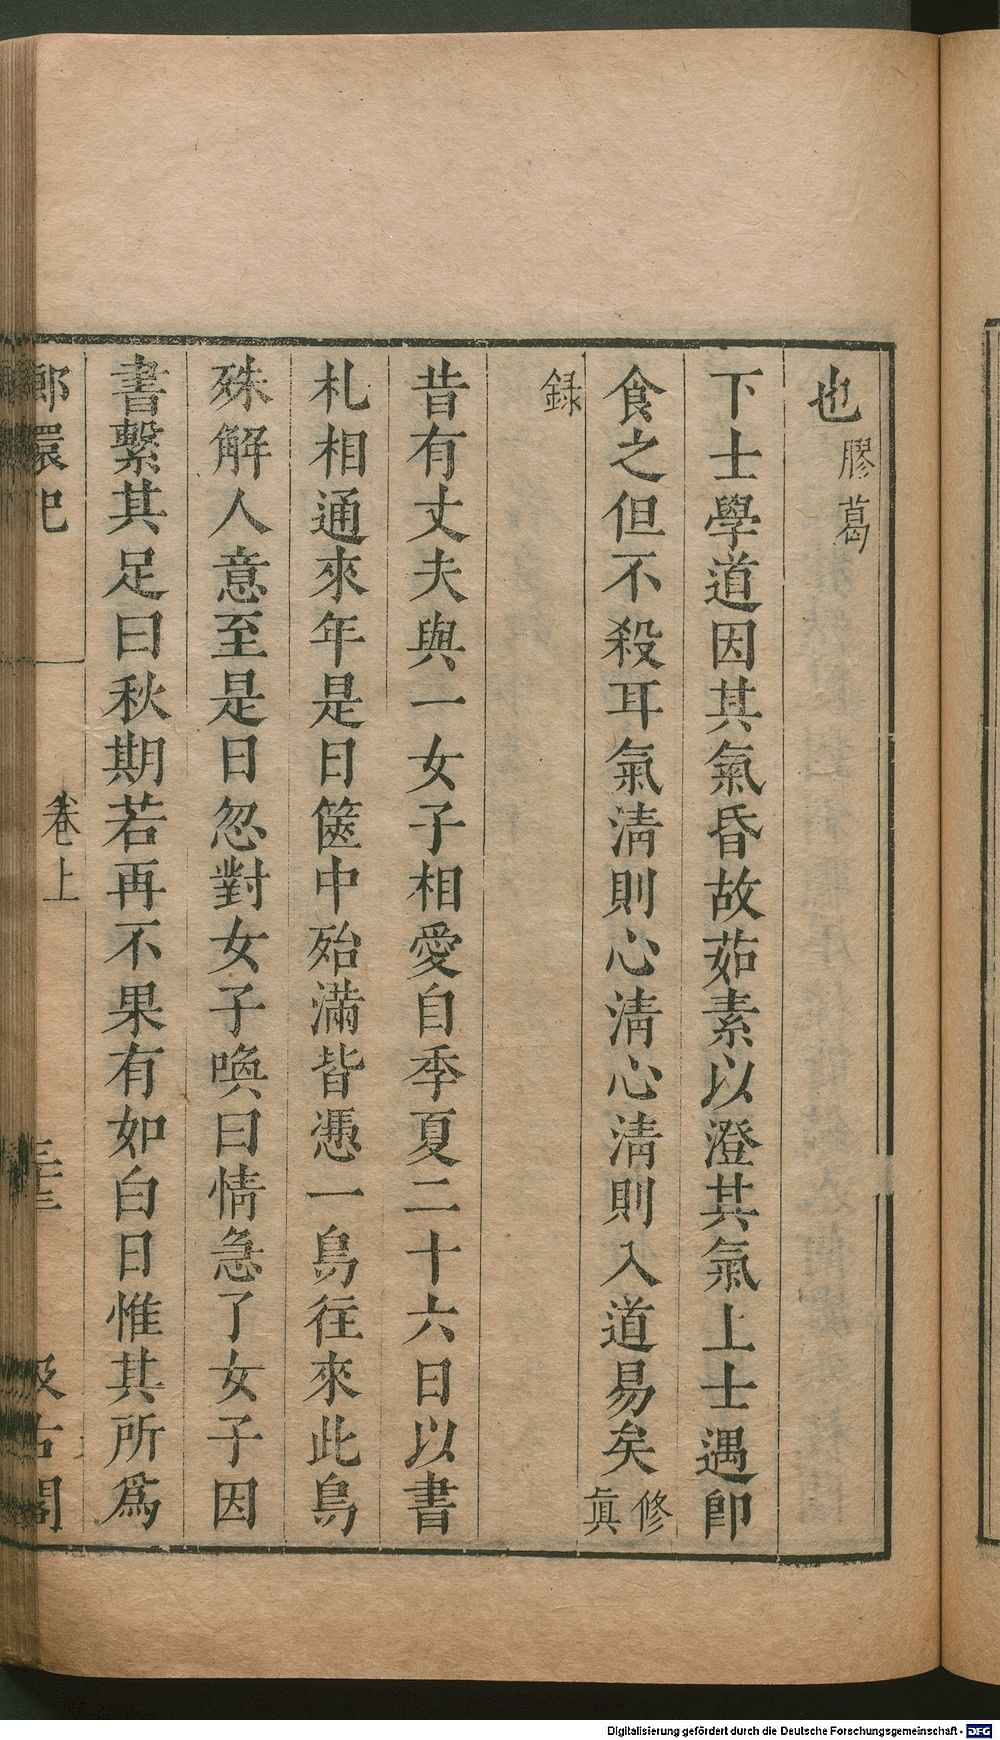 也膠葛
下士學道因其氣昏故茹素以澄其氣上士遇卽
食之但不殺耳氣淸則心淸心淸則入道易矣修眞
錄
昔有丈夫與一女子相愛自季夏二十六日以書
札相通來年是日篋中殆滿皆憑一鳥往來此鳥
殊解人意至是日忽對女子喚曰情急了女子因
書繫其足曰秋期若再不果有如白日惟其所爲
卷上
古閣
Digitalisierung gefördert durch die Deutsche Forschungsgemeinschaft - DFG